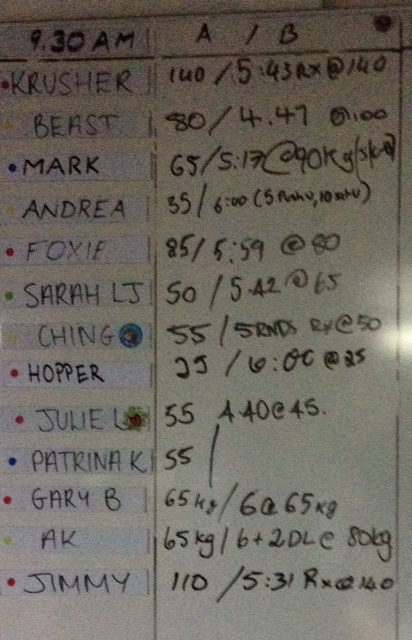 9.30 AM A / B
KRUSHER 140 / 5:43 Rx @ 140
BEAST 80 / 4.47 @100
MARK 65 / 5:17 @ 90kg
ANDREA 35 / 6:00 (5
FOXIE 85 / 5:59 @ 80
SARAH LJ 50 / 5.42 @ 65
CHING 55 / 5 RNDS Rx @ 50
HOPPER 25 / 6:00 @ 25
JULIE L 55 4.40 @ 45.
PATRINA K 55 /
GARY B 65kg / 6 @ 65kg
AK 65kg / 6+2DL @ 80kg
JIMMY 110 / 5:31 Rx @ 140